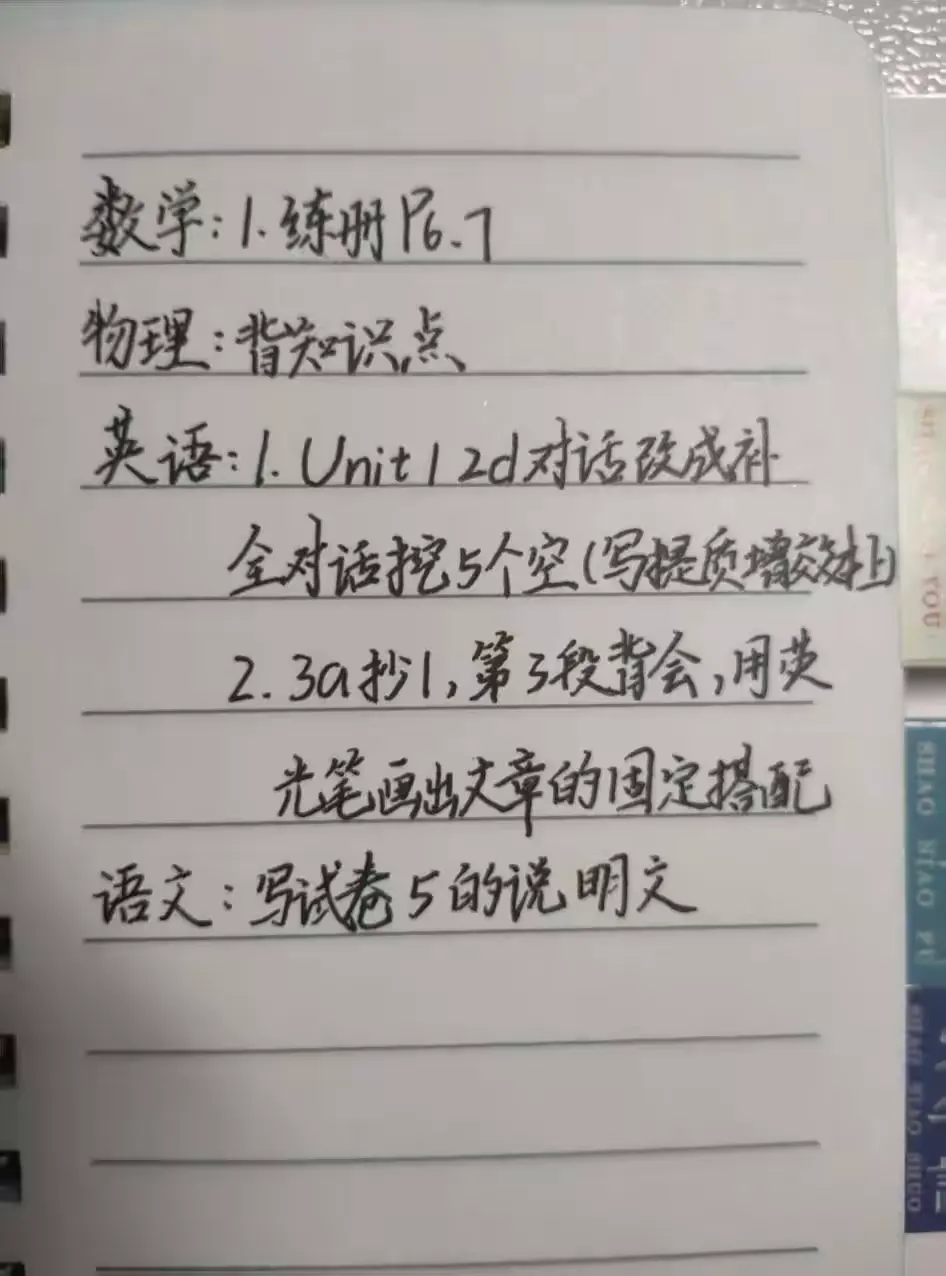 数学:1.练册P6.7
物理:背知识点
英语:1.Unit1 2d对话改成补
全对话挖5个空(写提质增效本上)
2.3a抄1,第3段背会,用荧
光笔画出文章的固定搭配
语文:写试卷5的说明文
YOU
SHAO NIAO FU